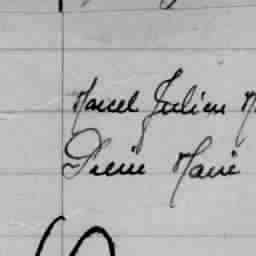 Marcel Julien
Pierre Marie